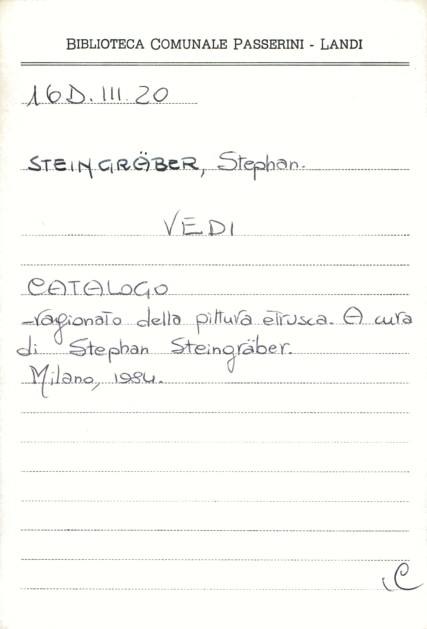 BIBLIOTECA COMUNALE PASSERINI - LANDI
16D.III.20
STEINGRÄBER, Stephan.
VEDI
CATALOGO
-ragionato della pittura etrusca. A cura
di Stephan Steingräber.
Milano, 1984.